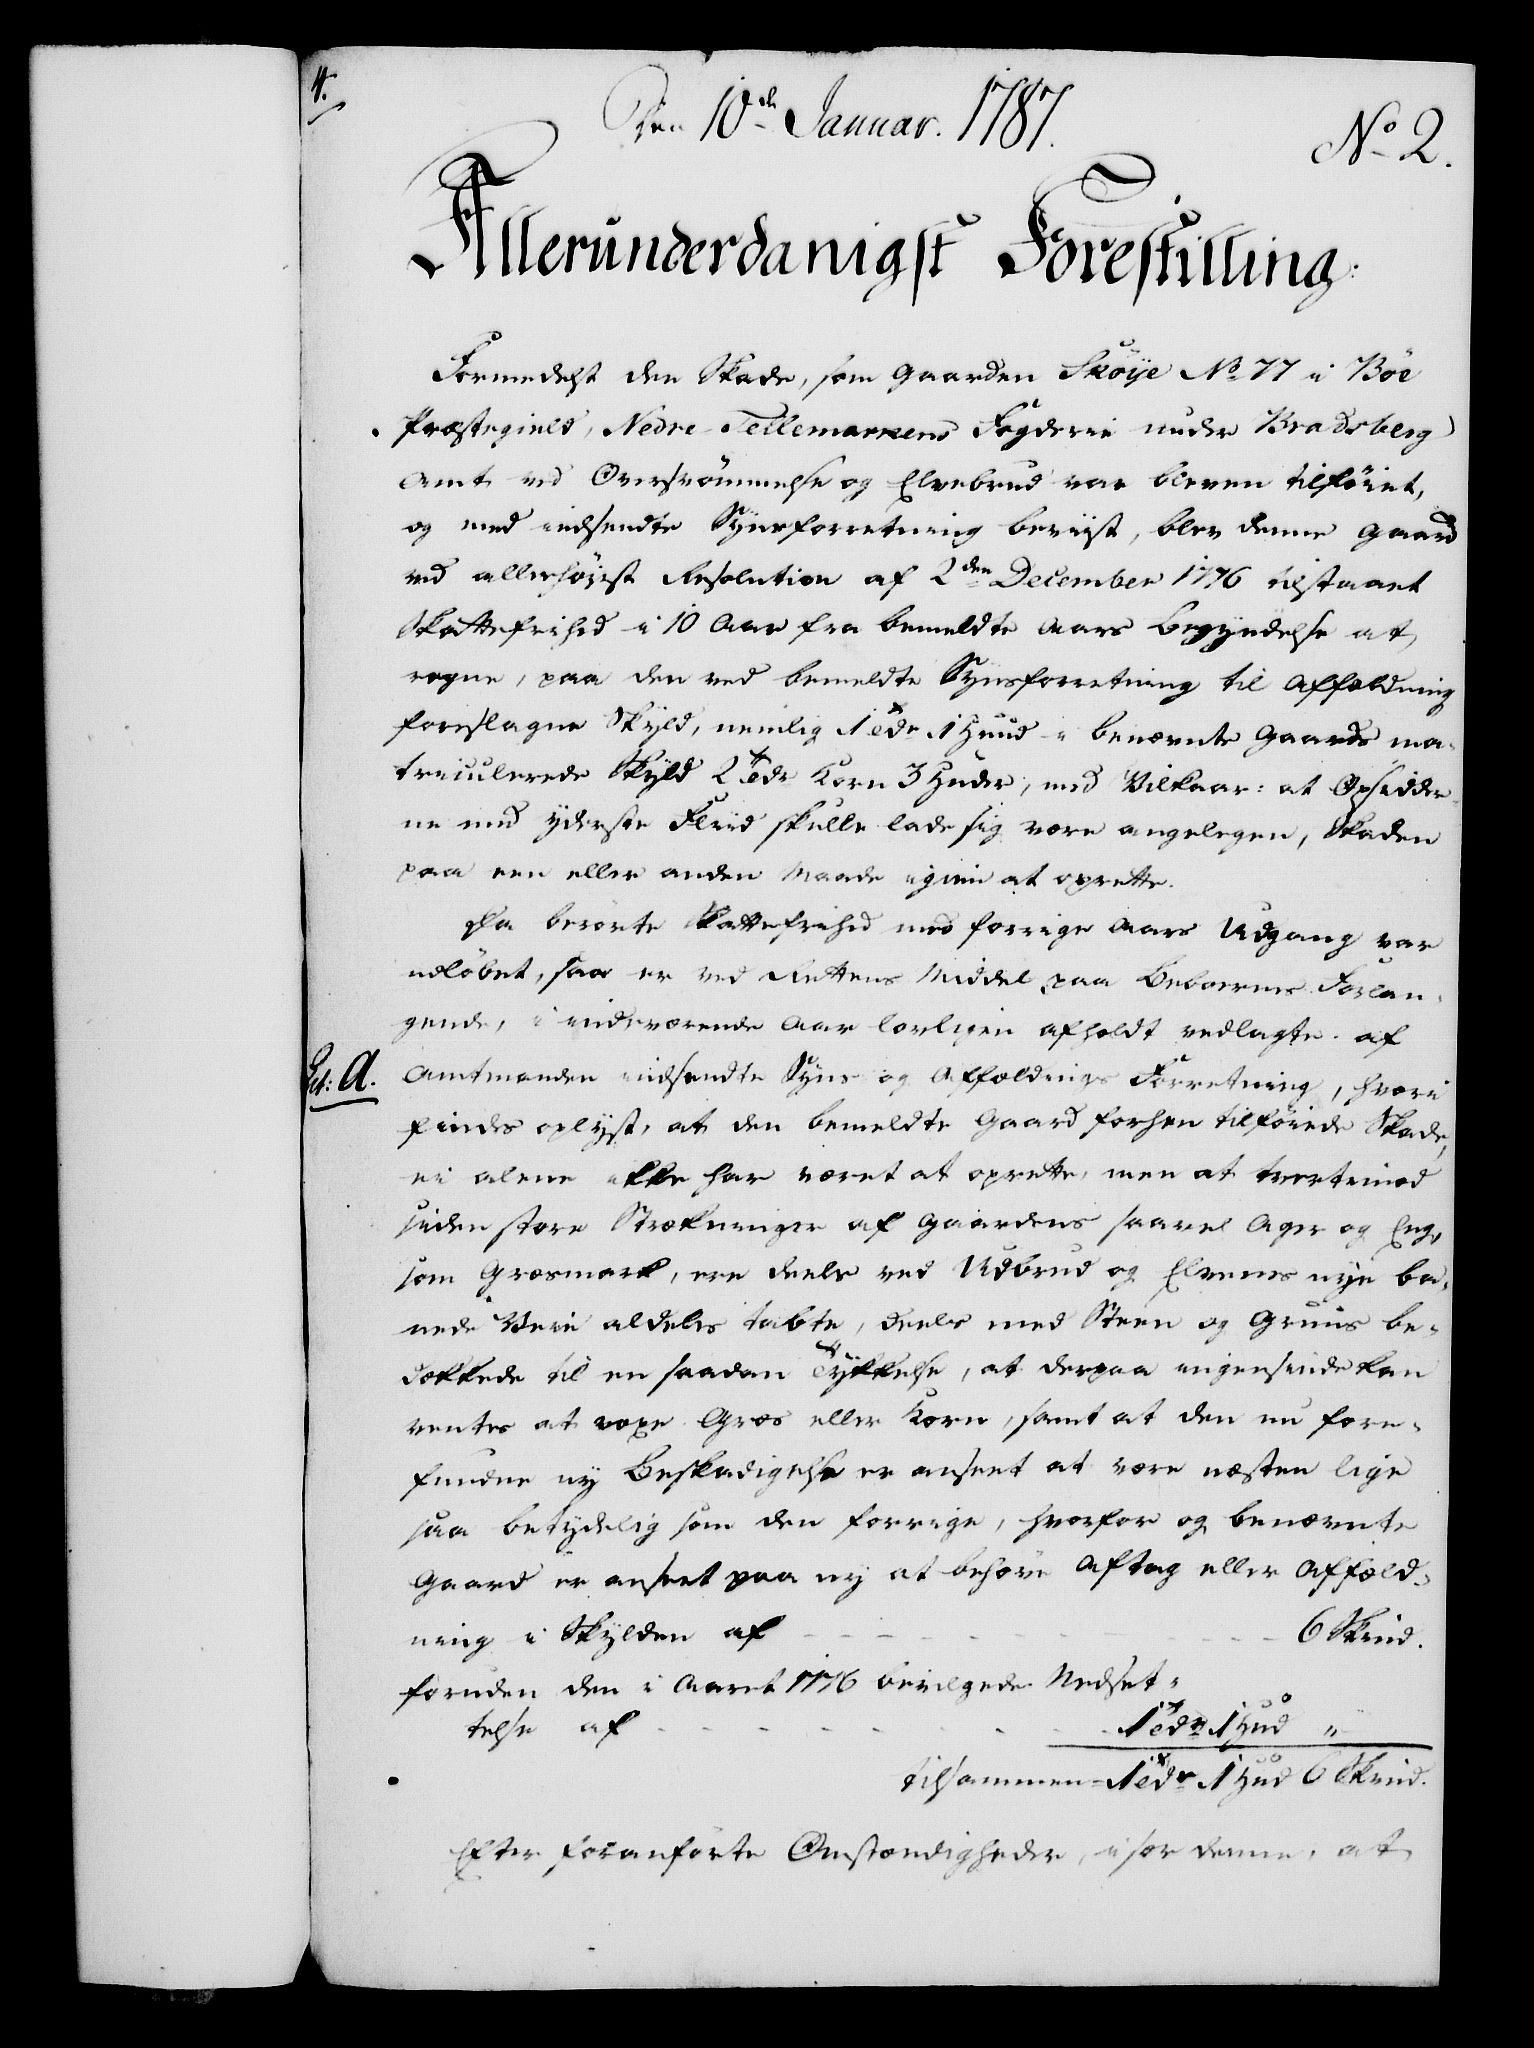 4.
Den 10de Januar. 1787.
No 2.
Allerunderdanigst Forestilling:
Formedelst den Skade, som Gaarden Skoÿe No 77 i Böe
Præstegield, Nedre Tellemarkens Fogderie under Bradsberg
Amt ved Oversvömmelse og Elvebrud var bleven tilföiet,
og med indsendte Synsforretning beviist, blev denne Gaard
ved allerhöyst Resolution af 2den December 1776 tilstaaet
Skattefrihed i 10 Aar fra bemeldte Aars Begyndelse at
regne, paa den ved bemeldte Synsforretning til Affældning
foreslagne Skyld, nemlig 1 Tdr 1 Huud i benævnte Gaards ma-
triculerede Skyld 2 Tdr Korn 3 Huder, med Vilkaar: at Opsidder-
ne med yderste Fliid skulle lade sig være angelegen, Skaden
paa een eller anden Maade igien at oprette.
Da berörte Skattefrihed med forrige Aars Udgang var
udlöbet, saa er ved Rettens Middel paa Beboernes Forlan-
gende, i indeværende Aar lovligen afholdt vedlagte af
Lit: A.
Amtmanden indsendte Syns og Affældnings Forretning, hvori
findes oplyst, at den bemeldte Gaard forhen tilföiede Skade,
ei alene ikke har været at oprette, men at tvertimod
siden store Strækninger af Gaardens saavel Ager og Eng,
som Græsmark, ere deels ved Udbrud og Elvens nye ba-
nede Veie aldeles tabte, deels med Steen og Gruus be-
dækkede til en saadan Tykkelse, at derpaa ingensinde kan
ventes at voxe Græs eller Korn, samt at den nu fore-
fundne ny Beskadigelse er anseet at være næsten lige
saa betydelig som den forrige, hvorfor og benævnte
Gaard er anseet paa ny at behöve Aftag eller Affæld-
ning i Skylden af - - - - - - 6 Skind.
foruden den i Aaret 1776 bevilgede Nedsæt-
telse af - - - - - - 1 Tdr 1 Hud "
tilsammen = 1 Tdr 1 Hud 6 Skind.
Efter foranförte Omstændigheder, i sær denne, at